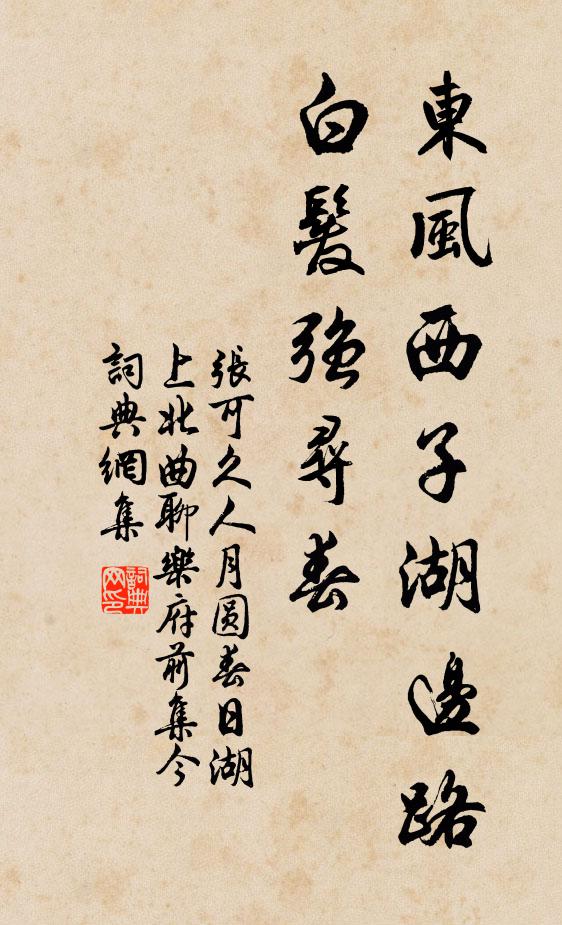 東風西子湖邊路
白髮強尋春
張可久人月圆春日湖
上北曲聊樂府前集今
詞典網集
詞典
网印